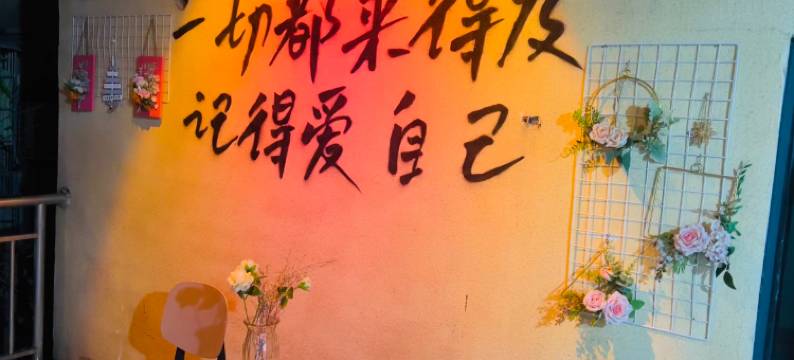 一切都来得及
记得爱自己